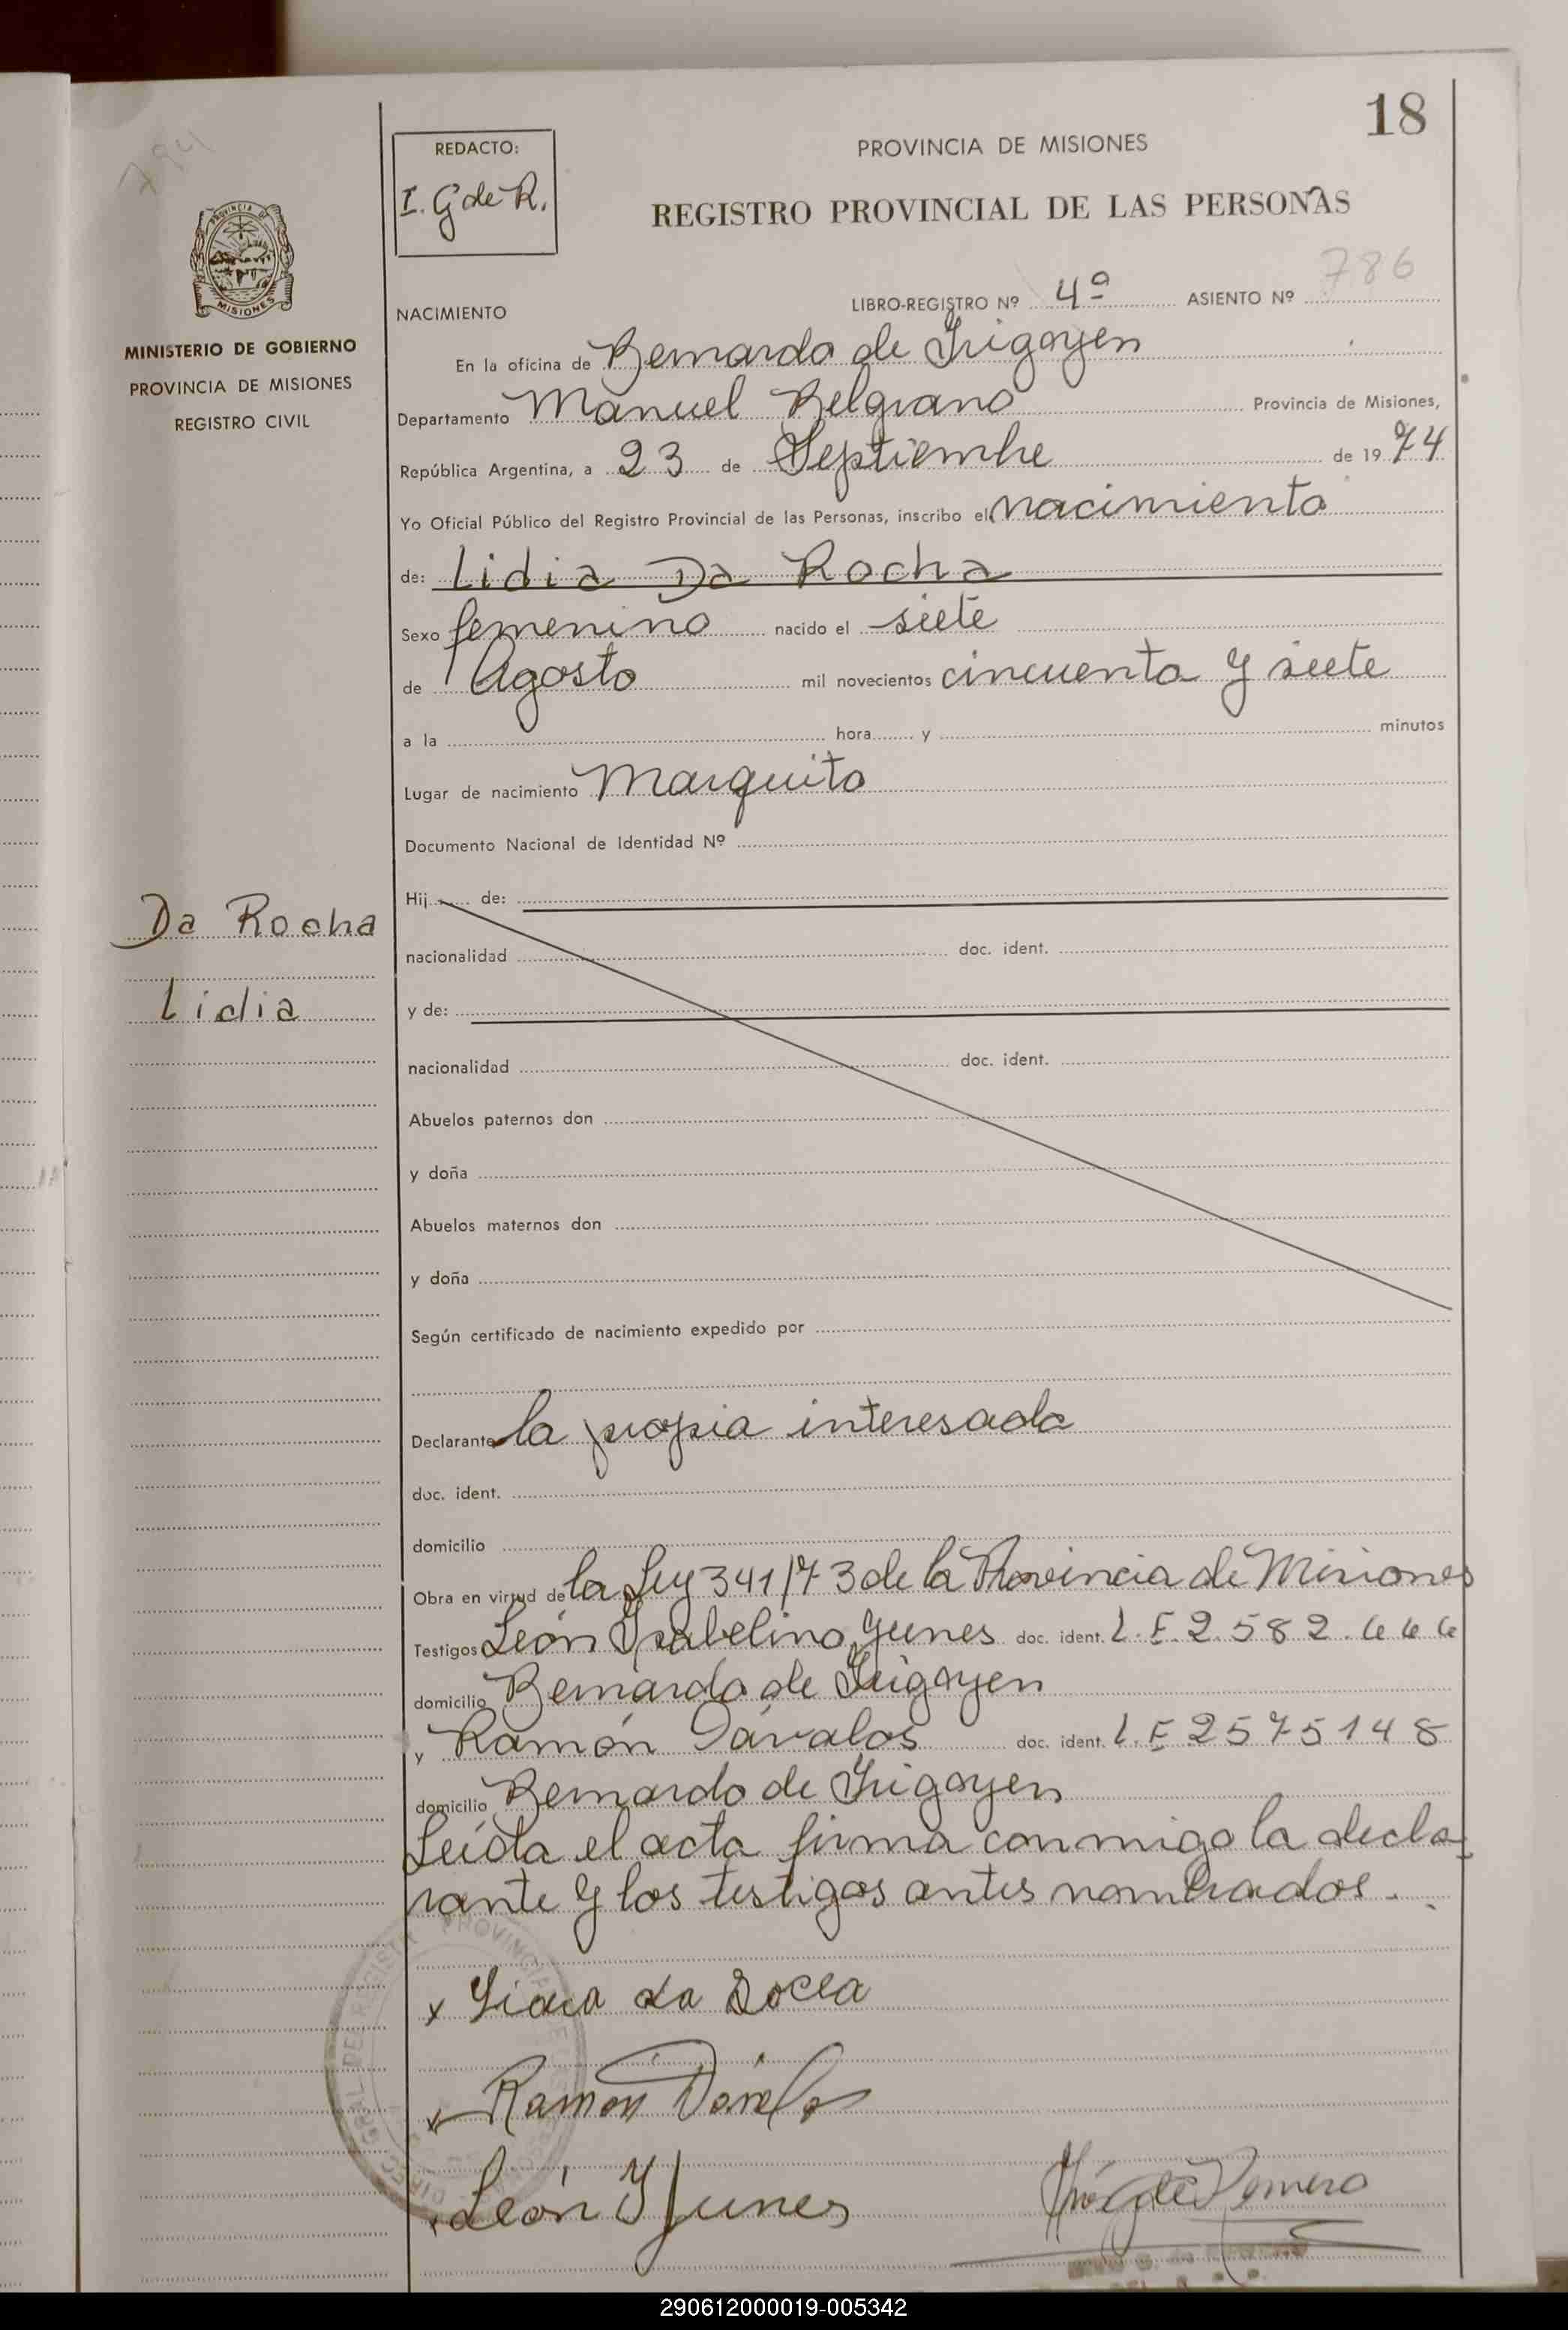 18
794
REDACTO:
I. G de R.
PROVINCIA DE MISIONES
REGISTRO PROVINCIAL DE LAS PERSONAS
PROVINCIA DE
MISIONES
MINISTERIO DE GOBIERNO
PROVINCIA DE MISIONES
REGISTRO CIVIL
NACIMIENTO LIBRO-REGISTRO Nº 4º ASIENTO Nº 786
En la oficina de Bernardo de Irigoyen
Departamento Manuel Belgrano Provincia de Misiones,
República Argentina, a 23 de Septiembre de 1974
Yo Oficial Público del Registro Provincial de las Personas, inscribo el nacimiento
de: Lidia Da Rocha
Sexo femenino nacido el siete
de Agosto mil novecientos cincuenta y siete
a la hora y minutos
Lugar de nacimiento Marquito
Documento Nacional de Identidad Nº
Da Rocha
Lidia
Hij de:
nacionalidad doc. ident.
y de:
nacionalidad doc. ident.
Abuelos paternos don
y doña
Abuelos maternos don
y doña
Según certificado de nacimiento expedido por
Declarante la propia interesada
doc. ident.
domicilio
Obra en virtud de la Ley 341/73 de la Provincia de Misiones
Testigos León Isabelino Yunes doc. ident. L.E.2.582.666
domicilio Bernardo de Irigoyen
y Ramón Dávalos doc. ident. L.E 2575148
domicilio Bernardo de Irigoyen
Leída el acta firma conmigo la decla
rante y los testigos antes nombrados.
x Lidia da Rocha
x Ramon Davalos
x León I Yunes
290612000019-005342